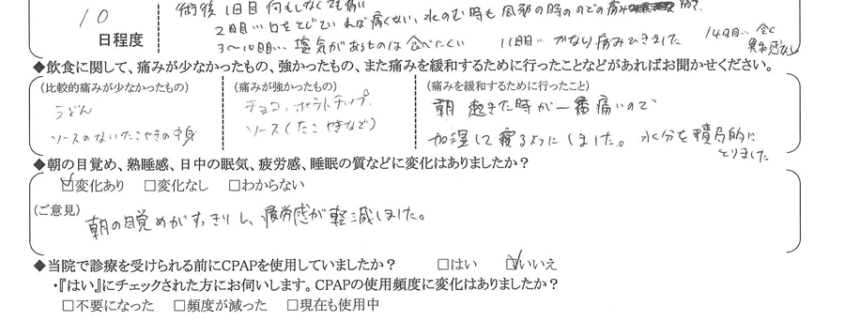 術後 1日目 何もしなくても痛い
10
2日目… 口をとじていれば痛くない、水のむ時も 風邪の時ののどの痛み
日程度
3〜10日目… 塩気があるものは食べにくい 11日目… かなり痛みひきました 14日目… 全く
◆飲食に関して、痛みが少なかったもの、強かったもの、また痛みを緩和するために行ったことなどがあればお聞かせください。
(比較的痛みが少なかったもの) (痛みが強かったもの) (痛みを緩和するために行ったこと)
うどん チョコ、ポテトチップ、 朝 起きた時が一番痛いので
ソースのないたこやきの中身 ソース(たこやきなど) 加湿して寝るようにしました。水分を積極的に
とりました
◆朝の目覚め、熟睡感、日中の眠気、疲労感、睡眠の質などに変化はありましたか?
☑変化あり □変化なし □わからない
(ご意見) 朝の目覚めがすっきりし、疲労感が軽減しました。
◆当院で診療を受けられる前にCPAPを使用していましたか? □はい ☑いいえ
・『はい』にチェックされた方にお伺いします。CPAPの使用頻度に変化はありましたか?
□不要になった □頻度が減った □現在も使用中